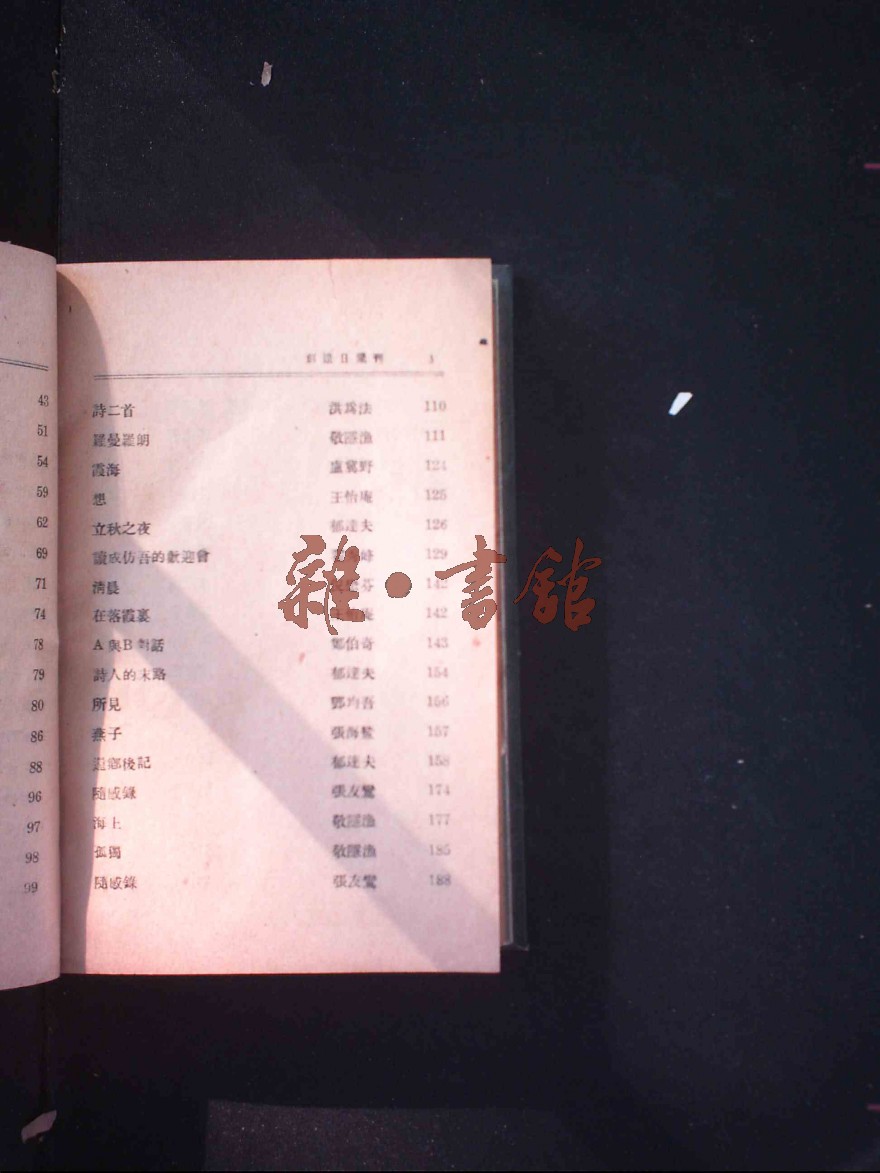 43
51
54
59
62
69
71
74
78
79
80
86
88
96
97
98
99
創造日彙刊 3
詩二首 洪爲法 110
羅曼羅朗 敬隱漁 111
霞海 盧冀野 124
想 王怡庵 125
立秋之夜 郁達夫 126
讀成仿吾的歡迎會 129
淸晨 142
在落霞裏 142
A與B對話 鄭伯奇 143
詩人的末路 郁達夫 154
所見 鄧均吾 156
燕子 張海鰲 157
還鄉後記 郁達夫 158
隨感錄 張友鸞 174
海上 敬隱漁 177
孤獨 敬隱漁 185
隨感錄 張友鸞 188
雜·書館